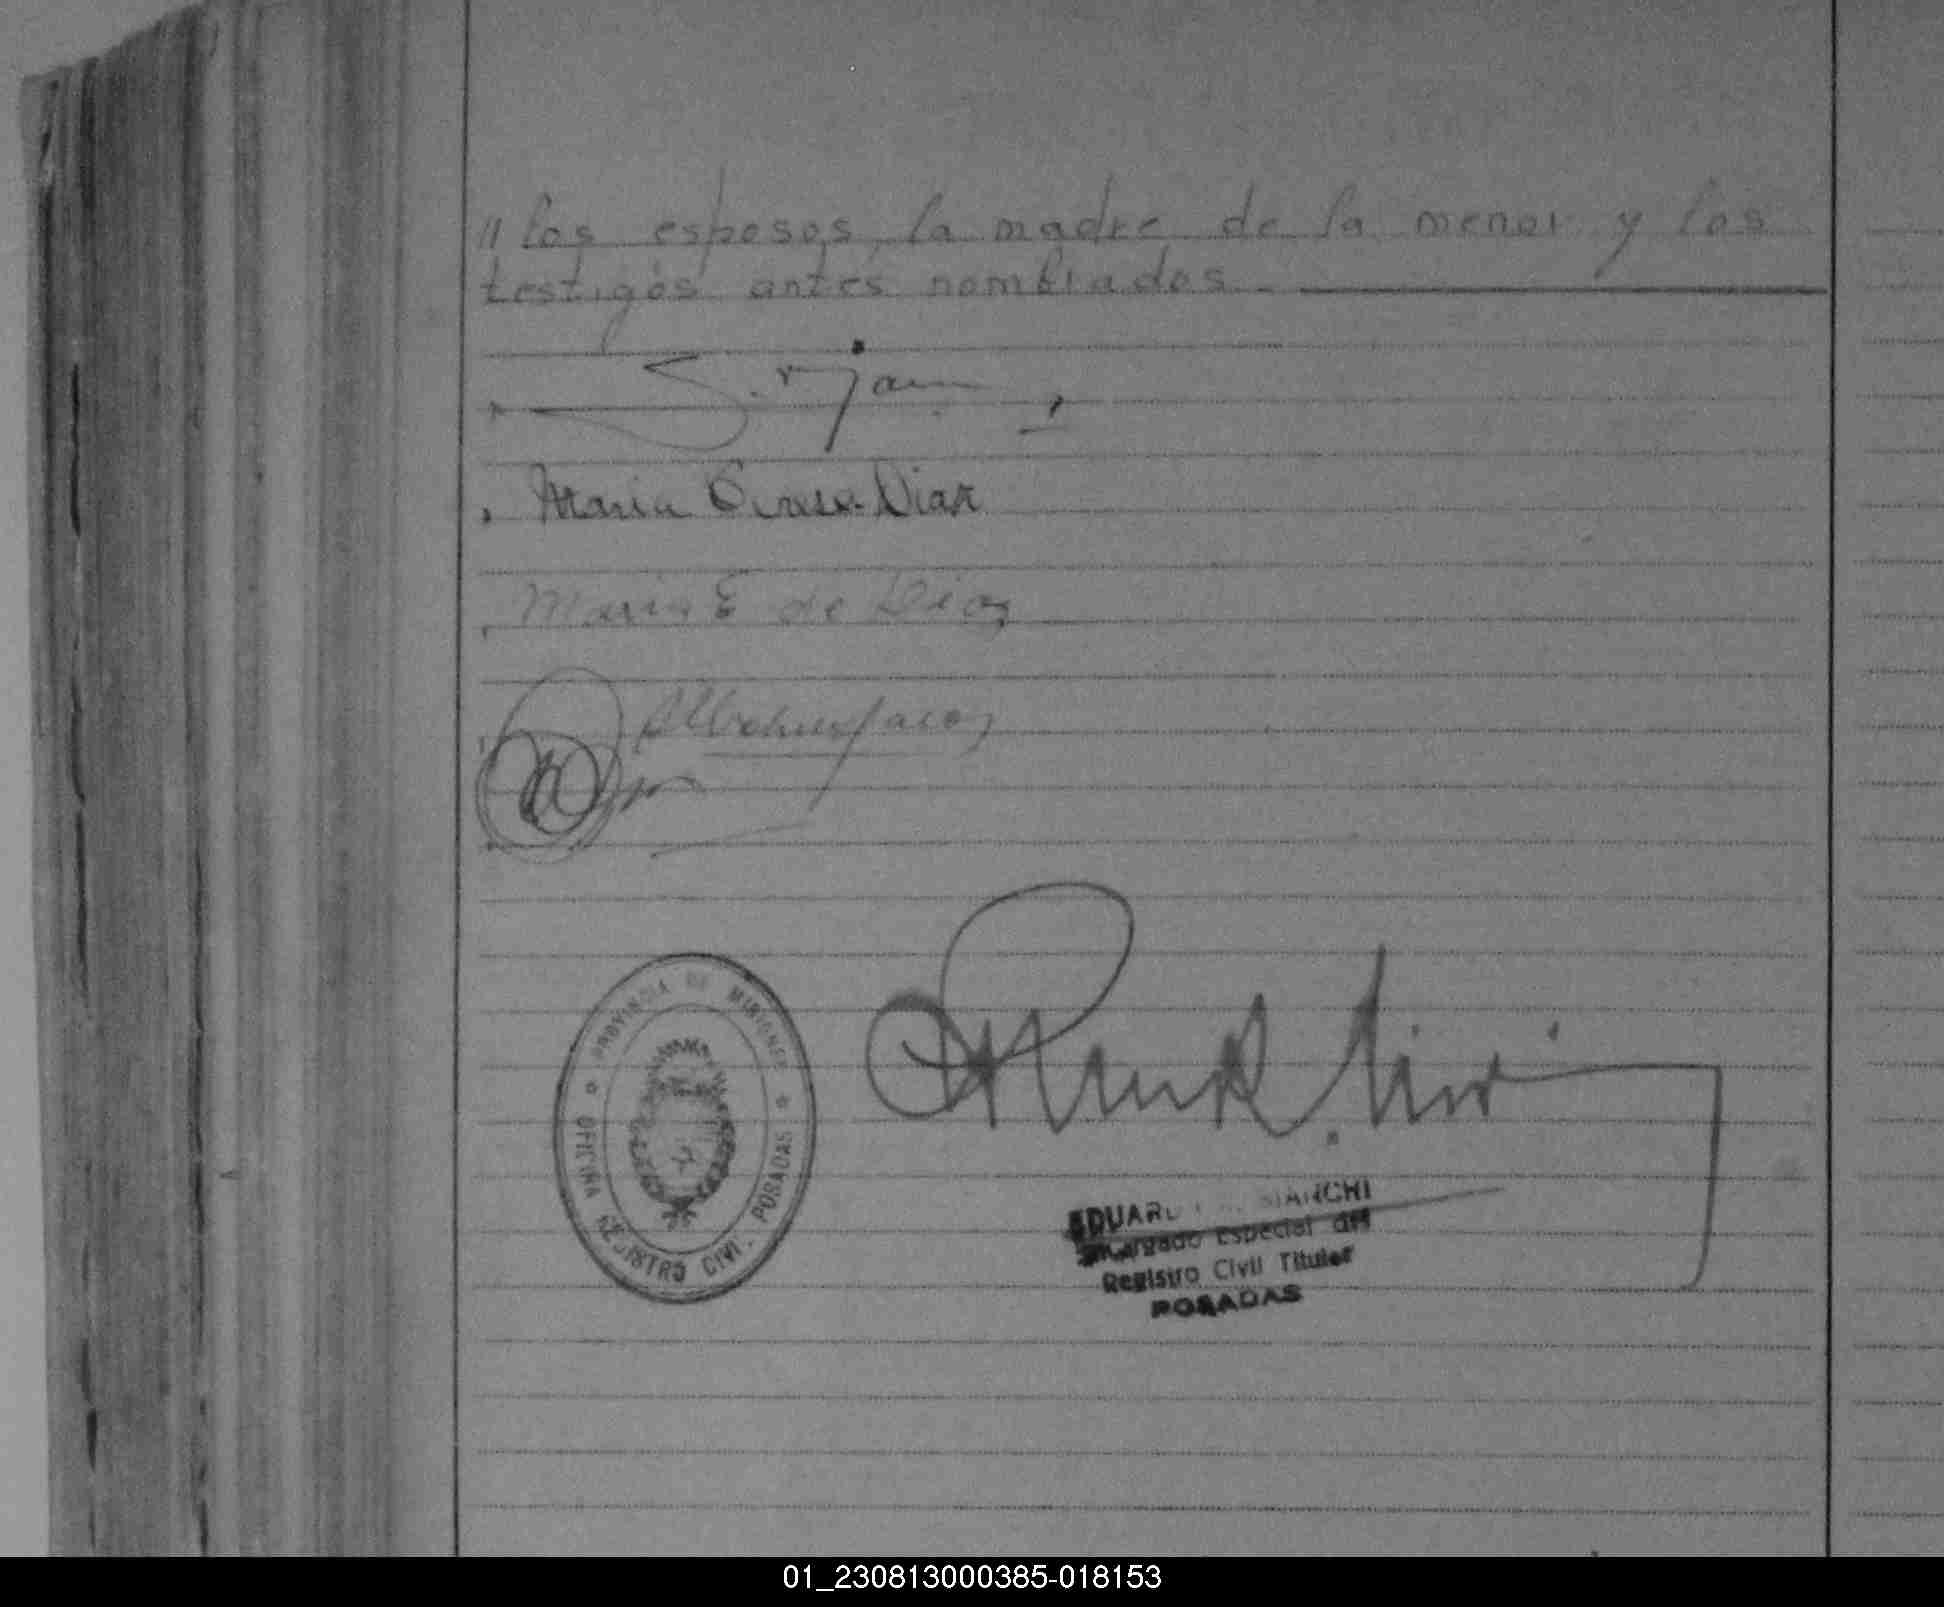 // los esposos, la madre de la menor y los
testigos antes nombrados. -
Maria Diaz
Maria E de Diaz
PROVINCIA DE MISIONES
OFICINA REGISTRO CIVIL POSADAS
EDUARDO BIANCHI
Encargado Especial del
Registro Civil Titular
POSADAS
01_230813000385-018153